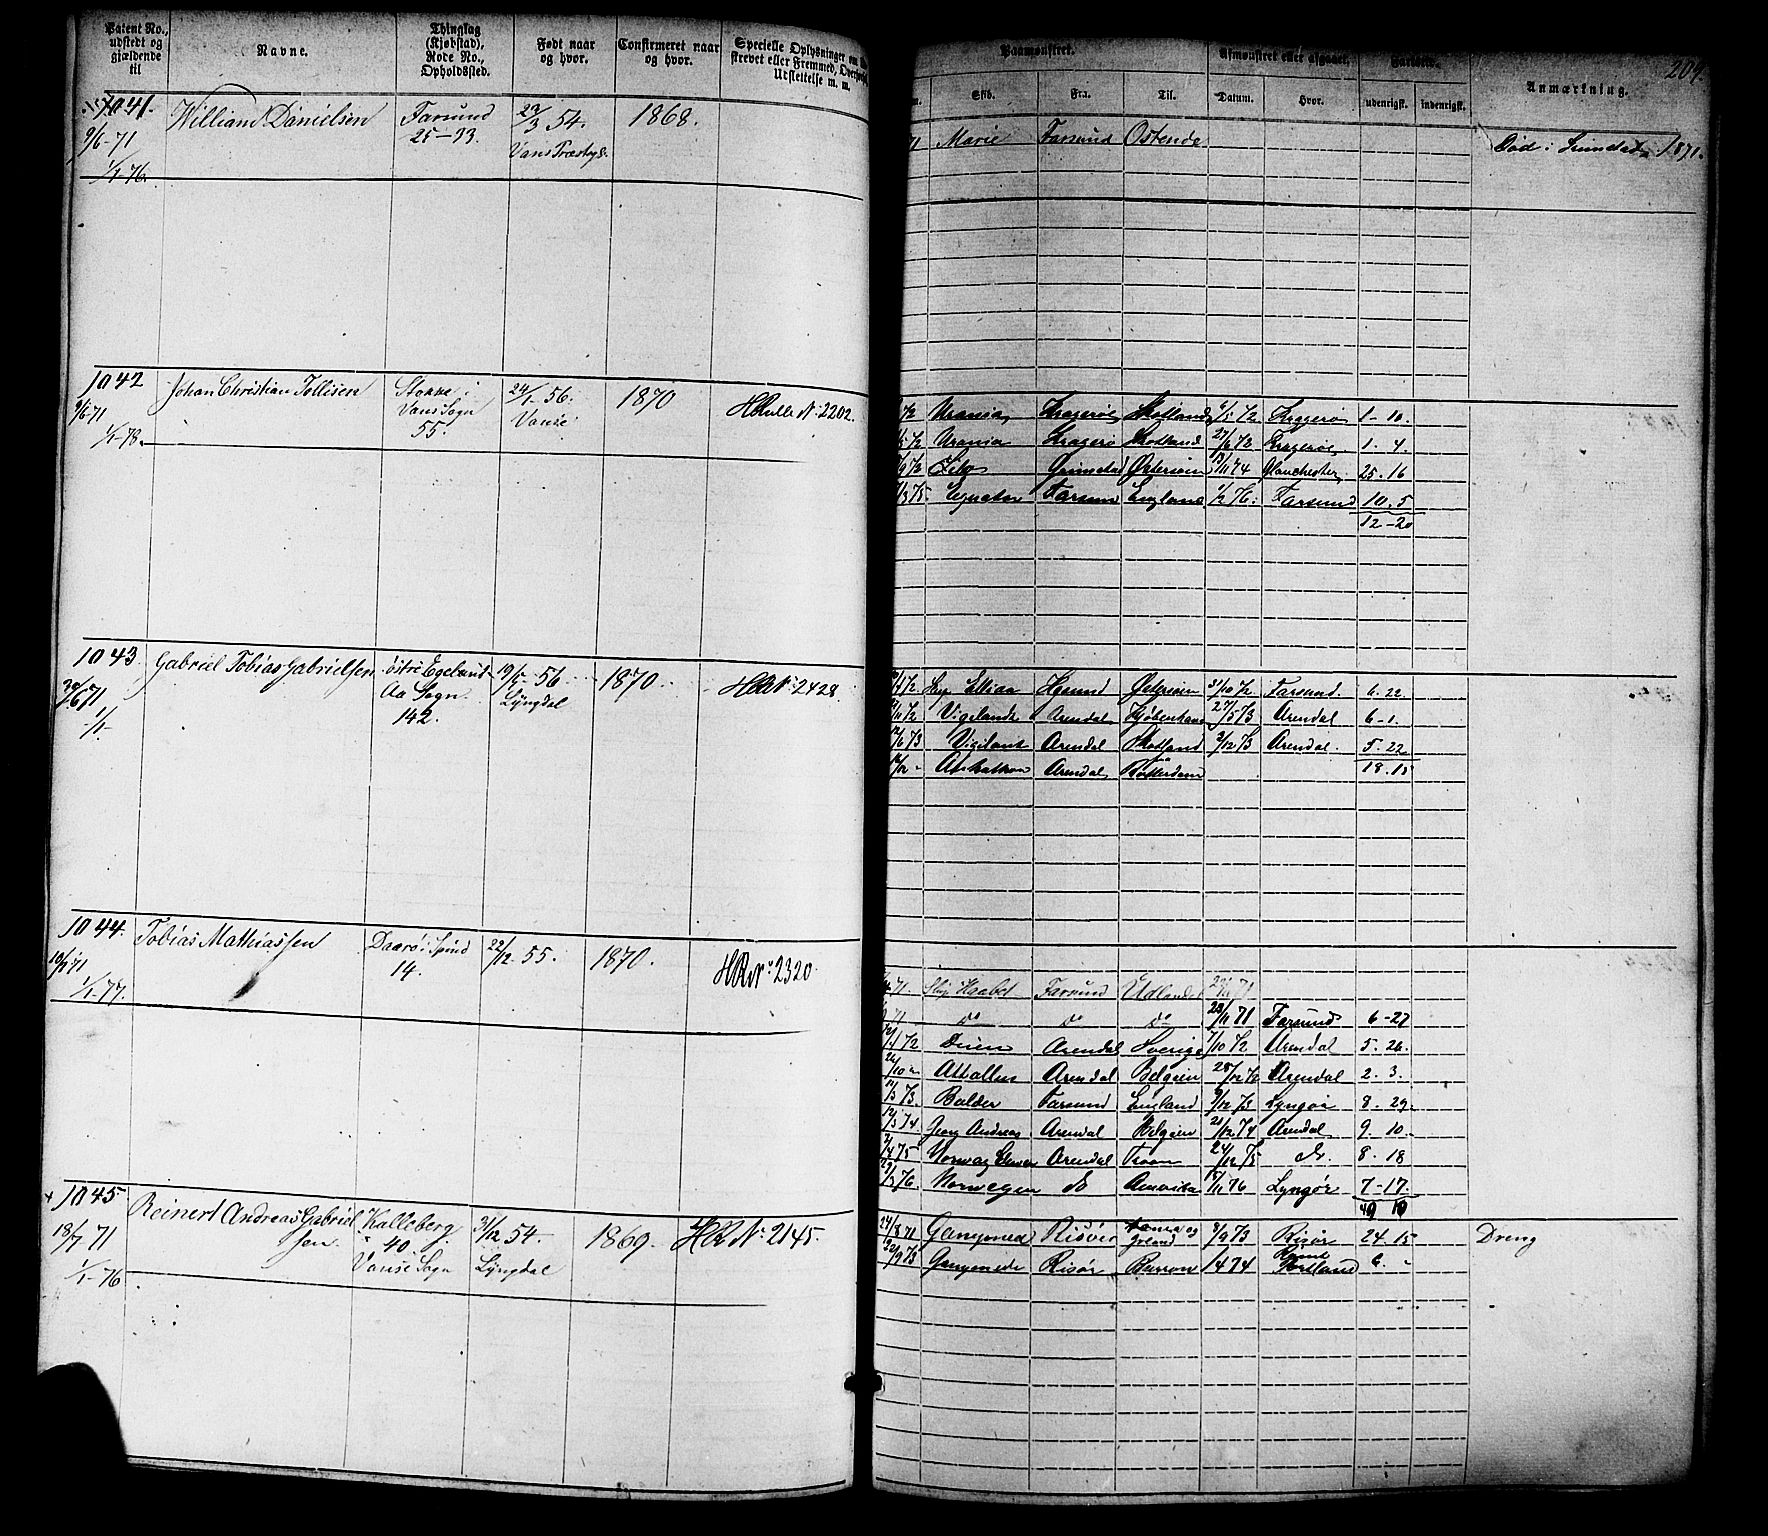 Patent No., udstedt og gjældende til
Navne.
Thinglag (Kjøbstad), Rode No., Opholdssted.
Født naar og hvor.
Confirmeret naar og hvor.
Specielle Oplysninger om
strevet eller Fremmed, Overf
Udslettelse m. m.
Paamønstret.
Afmønstret eller afgaaet.
Fartstid.
204
Skib.
Fra.
Til.
Datum.
Hvor.
udenrigsk.
indenrigsk.
Anmærkning.
1041. William Danielsen Farsund 22/3 54. 1868.
9/6-71 25-93 Vans Præstegj.
1/1-76.
71 Marie Farsund Ostende Død i Grimstad 1871.
1042 Johan Christian Tollisen Stokke i 24/1-56. 1870 HRulle Nº 2202.
9/6-71 Vans Sogn Vanse
1/1-78. 55.
Urania Kragerø Skotland 72. Kragerø 1-10.
Urania Kragerø Skotland 27/6 72 Kragerø 1. 4.
9 72 Grimstad Østersøen 74 Glouchester 25-16
3 75. Equator Farsun England 1/2 76. Farsund 10. 5
12-20
1043 Gabriel Tobias Gabrielsen Østre Egeland 19/5-56 1870. HRNº 2428
71 Aa Sogn Lyngdal
1/1- 142.
4 72 Østersøen 31/10 72 Farsund. 6. 22
11 72 Vigilande Arendal Kjøbenhavn 27/5 73 Arendal 6-1.
6 73 Vigilant Arendal Skotland 2/12 73 Arendal. 5-22
Arendal Rotterdam 18. 15
1044. Tobias Mathiassen Daarø i Spind 22/12 55. 1870. HRNº 2320.
71 14.
1/1-77.
71. Skip Haabet Farsund Udlandet 71
71 do do do 28/11 71 Farsund 6-27
72 Arendal Sverige 7/10 72 Arendal 5. 26.
Arendal Belgien 28/12 72 Arendal 2. 3.
3 73. Balder Farsund England 9/12 73 Lyngør 8. 29.
12/3 74 Georg Andreas Arendal Belgien 21/12 74 Arendal 9 10.
4 75 Arendal 24/12 75 do. 8. 18
3 76 Norwegen do Amerika 11 76 Lyngør 7-17.
49 10
1045 Reinert Andreas Gabriel Kalleberg 31/12 54. 1869. HR Nº 2145.
18/7-71 sen. 40. Lyngdal
1/1-76 Vanse Sogn
24/8 71 Ganymed Risør og 8/9 73 Risør 24. 15 Dreng
22/9 73 Ganymede Risør 1474 Portland 6.